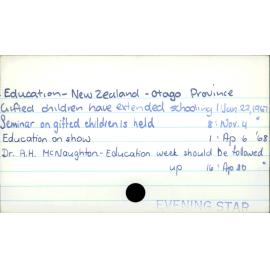 Education - New Zealand - Otago Province
Gifted children have extended schooling 1: Jan. 22, 1967
Seminar on gifted children is held 8: Nov. 4 "
Education on show 1: Ap 6 '68
Dr. A.H. McNaughton - Education week should be followed
up 16: Ap 20 "
EVENING STAR